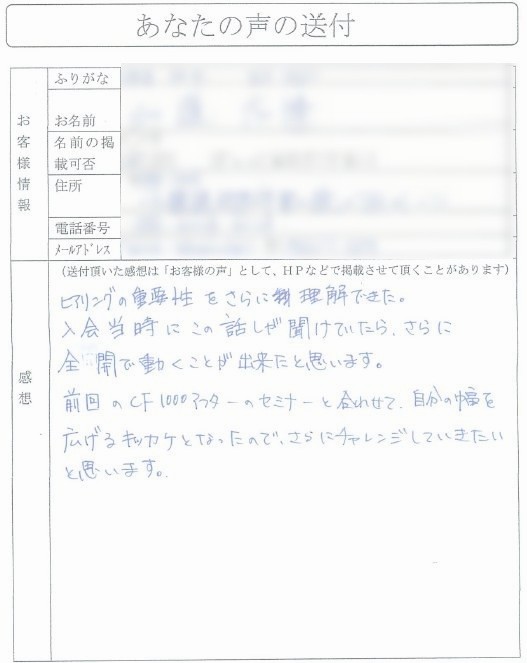 あなたの声の送付
お客様情報
ふりがな
お名前
名前の掲
載可否
住所
電話番号
メールアドレス
感想
(送付頂いた感想は「お客様の声」として、HPなどで掲載させて頂くことがあります)
ヒアリングの重要性をさらに理解できた。
入会当時にこの話しが聞けていたら、さらに
全開で動くことが出来たと思います。
前回のCF1000アフターのセミナーと合わせて、自分の幅を
広げるキッカケとなったので、さらにチャレンジしていきたい
と思います。